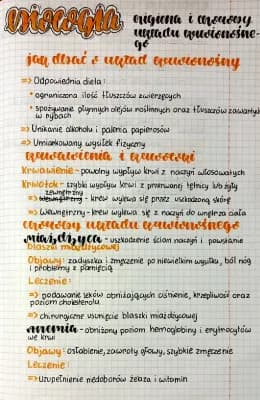 BIOLOGIA
Higiena i choroby
układu krwionośne-
go
jak dbać o układ krwionośny
=> Odpowiednia dieta:
• ograniczona ilość tłuszczów zwierzęcych
• spożywanie płynnych olejów roślinnych oraz tłuszczów zawartych
w rybach
=> Unikanie alkoholu i palenia papierosów
=> Umiarkowany wysiłek fizyczny
krwawienia i krwotoki
Krwawienie - powolny wypływ krwi z naczyń włosowatych
Krwotok - szybki wypływ krwi z przerwanej tętnicy lub żyły
zewnętrzny
=> wewnętrzny - krew wylewa się przez uszkodzoną skórę
=> Wewnętrzny - krew wylewa się z naczyń do wnętrza ciała
choroby układu krwionośnego
miażdżyca - uszkodzenie ścian naczyń i powstanie
blaszki miażdżycowej
Objawy: zadyszka i zmęczenie po niewielkim wysiłku, ból nóg
i problemy z pamięcią
Leczenie:
=> podawanie leków obniżających ciśnienie, krzepliwość oraz
poziom cholesterolu
=> chirurgiczne usunięcie blaszki miażdżycowej
anemia - obniżony poziom hemoglobiny i erytrocytów
we krwi
Objawy: osłabienie, zawroty głowy, szybkie zmęczenie
Leczenie:
=> Uzupełnienie niedoborów żelaza i witamin